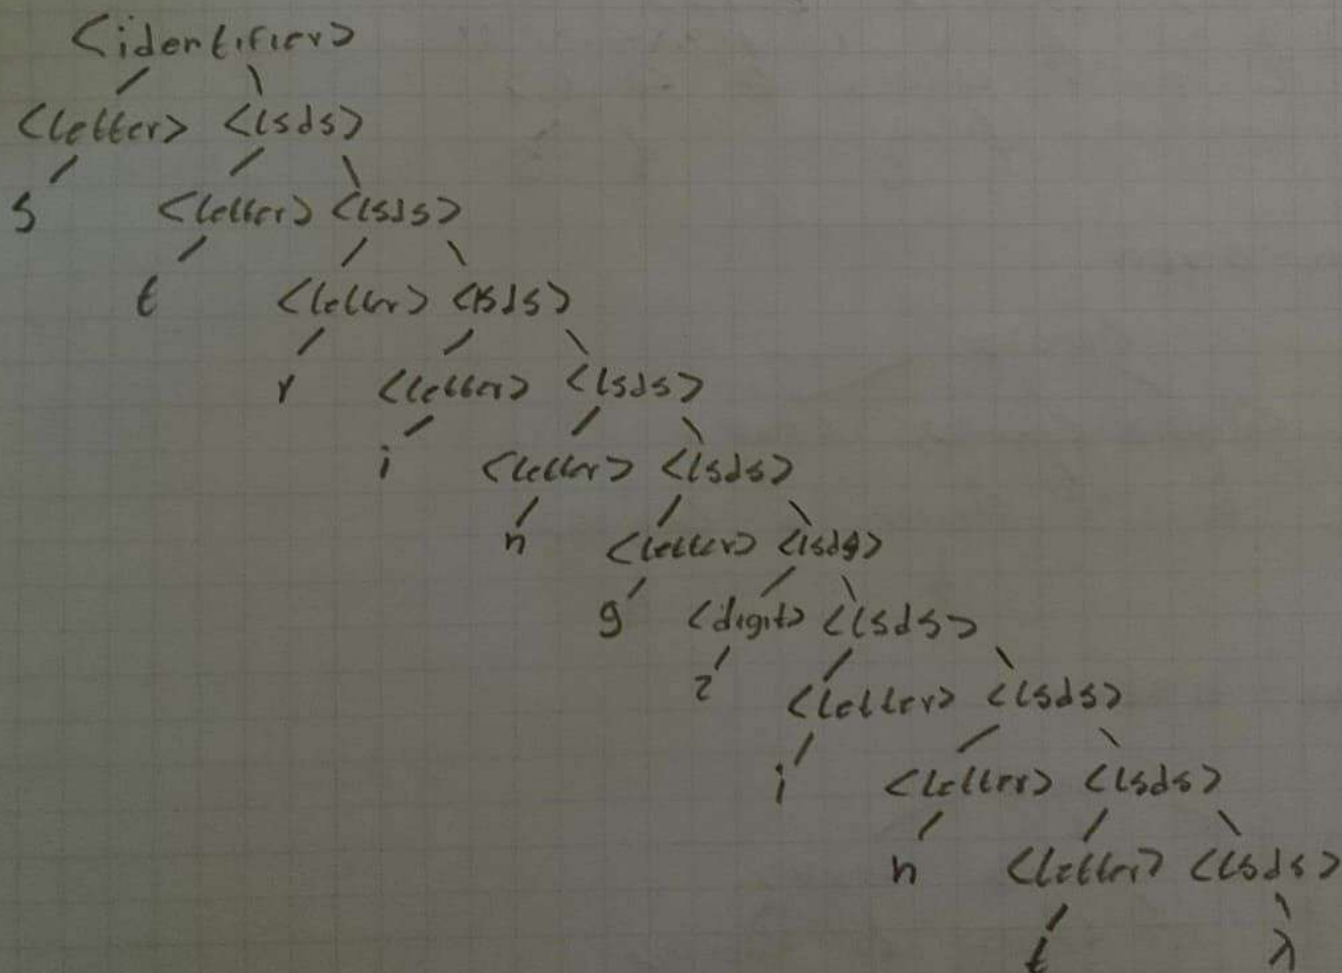 <identifier>
<letter> <lsds>
s <letter> <lsds>
t <letter> <lsds>
r <letter> <lsds>
i <letter> <lsds>
n <letter> <lsds>
g <digit> <lsds>
2 <letter> <lsds>
i <letter> <lsds>
n <letter> <lsds>
t λ